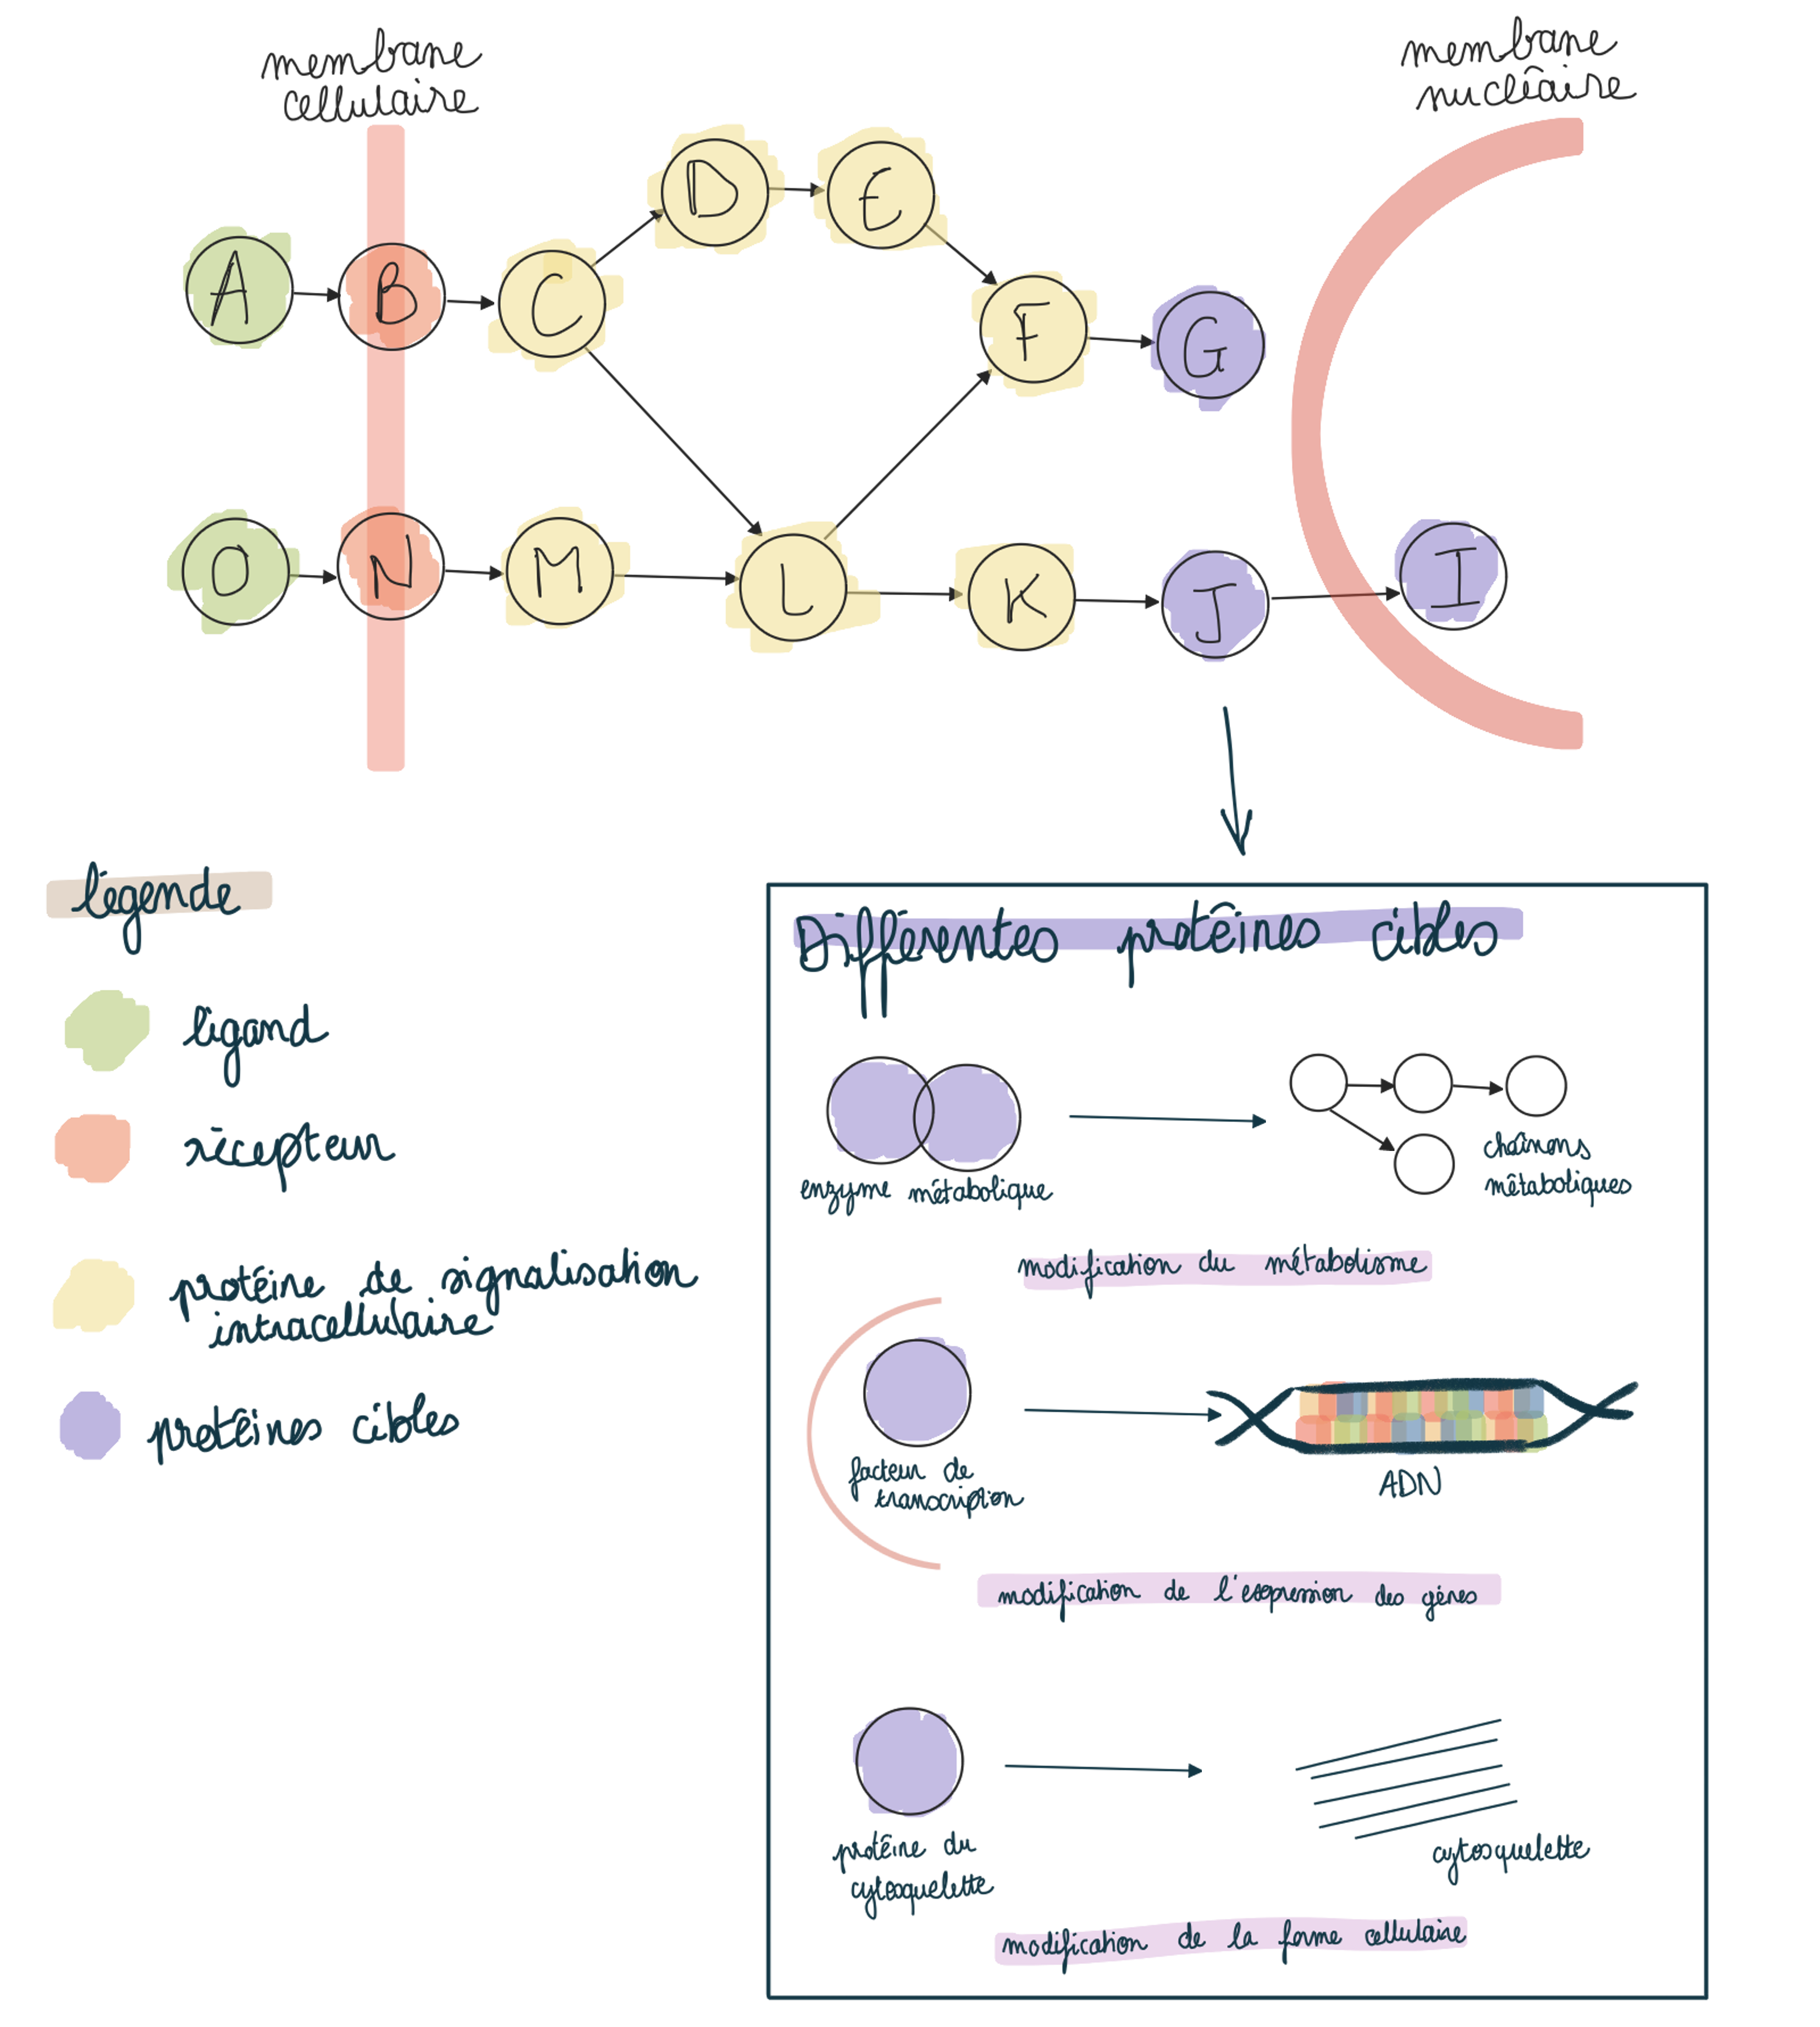 membrane
cellulaire
membrane
nucléaire
D
E
A
B
C
F
G
O
N
M
L
K
J
I
légende
ligand
récepteur
protéine de signalisation
intracellulaire
protéines cibles
Différentes protéines cibles
enzyme métabolique
chaînons
métaboliques
modification du métabolisme
facteur de
transcription
ADN
modification de l'expression des gènes
protéine du
cytosquelette
cytosquelette
modification de la forme cellulaire